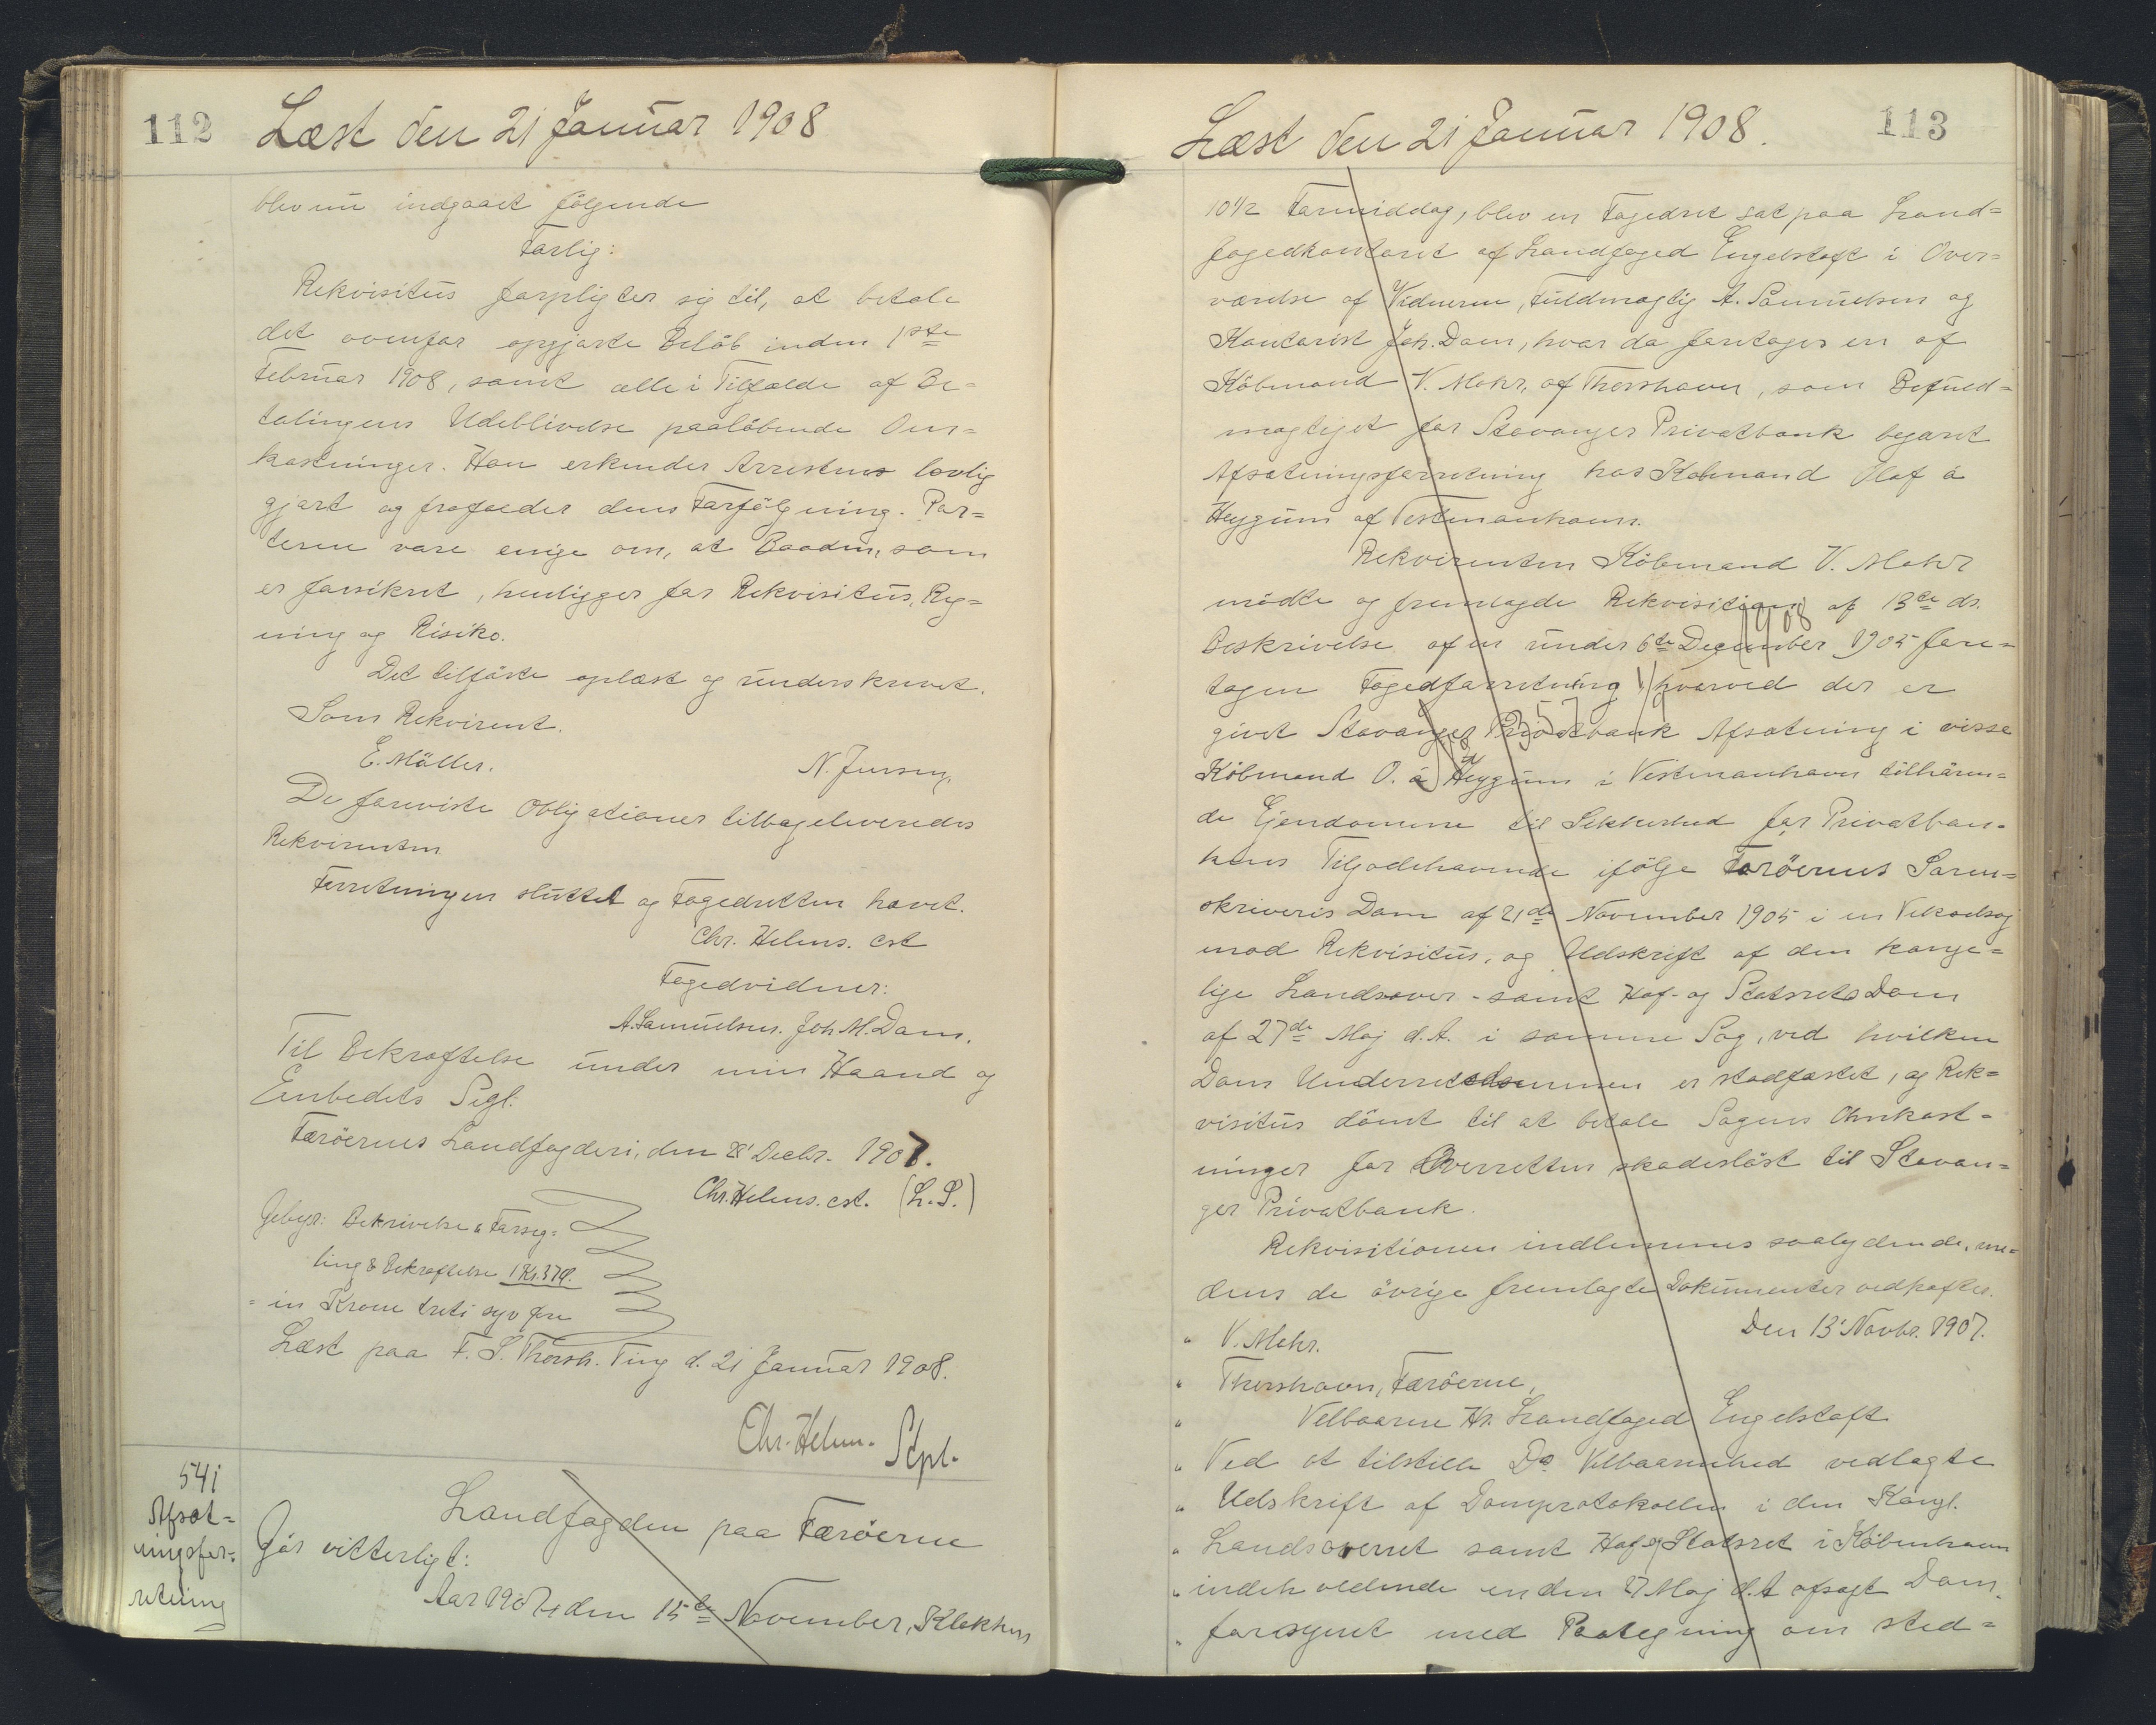 112
Læst den 21 Januar 1908
blev nu indgaaet følgende
Forlig:
Rekvisitus forpligter sig til, at betale
det ovenfor opgjorte Beløb inden 1ste
Februar 1908, samt alle i Tilfælde af Be=
talingens Udeblivelse paaløbende Om=
kostninger. Han erkender Arrestens lovlig
gjort og frafalder dens Forfølgning. Par=
terne vare enige om, at Baaden, som
er forsikret, henligger for Rekvisitus, Reg=
ning og Risiko.
Det tilførte oplæst og underskrevet.
Som Rekvirent.
E. Müller. N. Jensen.
De foreviste Obligationer tilbageleveredes
Rekvirenten
Forretningen sluttet og Fogedretten hævet.
Chr. Helms. cst
Fogedvidner:
A. Samuelsen. Joh. M. Dam.
Til Bekræftelse under min Haand og
Embedets Segl.
Færøernes Landfogderi, den 28' Decbr. 1907.
Chr. Helms. cst. (L. S.)
Gebyr: Beskrivelse & Forseg=
ling & Bekræftelse 1 Kr. 37 Ø.
= en Krone treti syv Øre
Læst paa F. S. Thorsh. Ting d. 21 Januar 1908.
Chr. Helms. Sept.
541
Afsæt=
ningsfor=
retning
Landfogden paa Færøerne
Gör vitterligt:
Aar 1907, den 15de November, Klokken
Læst den 21 Januar 1908.
113
10½ Formiddag, blev en Fogedret sat paa Land=
fogedkontoret af Landfoged Engelstoft i Over=
værelse af Vidnerne, Fuldmægtig A. Samuelsen og
Kontorist Joh. Dam, hvor da foretoges en af
Købmand V. Mohr, af Thorshavn, som Befuld=
mægtiget for Stavanger Privatbank begæret
Afsætningsforretning hos Købmand Olaf á
Heygum af Vestmanhavn.
Rekvirenten Købmand V. Mohr
mødte og fremlagde Rekvisition af 13de ds.
Beskrivelse af en under 6te December 1905 fore=
tagen Fogedforretning, hvorved der er
givet Stavanger Privatbank Afsætning i visse
Købmand O. á Heygum i Vestmanhavn tilhøren=
de Ejendomme til Sikkerhed for Privatban=
kens Tilgodehavende ifølge Færøernes Soren=
skriveris Dom af 21de November 1905 i en Vekselsag
mod Rekvisitus, og Udskrift af den konge=
lige Landsover- samt Hof- og Statsrets Dom
af 27de Maj d. A. i samme Sag, ved hvilken
Dom Underretsdommen er stadfæstet, og Rek=
visitus dømt til at betale Sagens Omkost=
ninger for Overretten skadesløst til Stavan=
ger Privatbank.
Rekvisitionen indlemmes saalydende, me=
dens de øvrige fremlagte Dokumenter vedhæftes.
Den 13' Novbr. 1907.
" V. Mohr.
" Thorshavn, Færøerne,
" Velbaarne Hr. Landfoged Engelstoft
" Ved at tilstille Ds. Velbaarenhed vedlagte
" Udskrift af Domprotokollen i den Kongl.
" Landsoverret samt Hof og Statsret i København
" indeholdende en den 27 Maj d. A. afsagt Dom,
" forsynet med Paategning om sted=